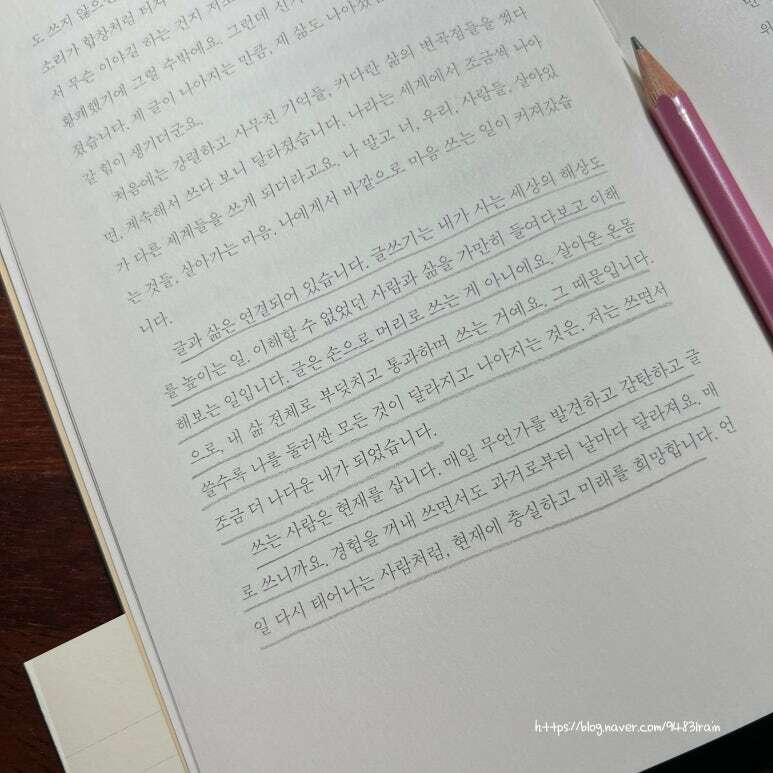 도 쓰지 않으면
소리가 합창처럼 터져
서 무슨 이야길 하는 건지 저도
황폐했기에 그럴 수밖에요. 그런데 신기
졌습니다. 제 글이 나아지는 만큼, 제 삶도 나아졌
갈 힘이 생기더군요.
처음에는 강렬하고 사무친 기억들, 커다란 삶의 변곡점들을 썼다
면, 계속해서 쓰다 보니 달라졌습니다. 나라는 세계에서 조금씩 나아
가 다른 세계들을 쓰게 되더라고요. 나 말고 너, 우리, 사람들, 살아있
는 것들, 살아가는 마음. 나에게서 바깥으로 마음 쓰는 일이 커져갔습
니다.
글과 삶은 연결되어 있습니다. 글쓰기는 내가 사는 세상의 해상도
를 높이는 일. 이해할 수 없었던 사람과 삶을 가만히 들여다보고 이해
해보는 일입니다. 글은 손으로 머리로 쓰는 게 아니에요. 살아온 온몸
으로, 내 삶 전체로 부딪치고 통과하며 쓰는 거예요. 그 때문입니다.
쓸수록 나를 둘러싼 모든 것이 달라지고 나아지는 것은. 저는 쓰면서
조금 더 나다운 내가 되었습니다.
쓰는 사람은 현재를 삽니다. 매일 무언가를 발견하고 감탄하고 글
로 쓰니까요. 경험을 꺼내 쓰면서도 과거로부터 날마다 달라져요. 매
일 다시 태어나는 사람처럼, 현재에 충실하고 미래를 희망합니다. 언
위
https://blog.naver.com/9483lrain